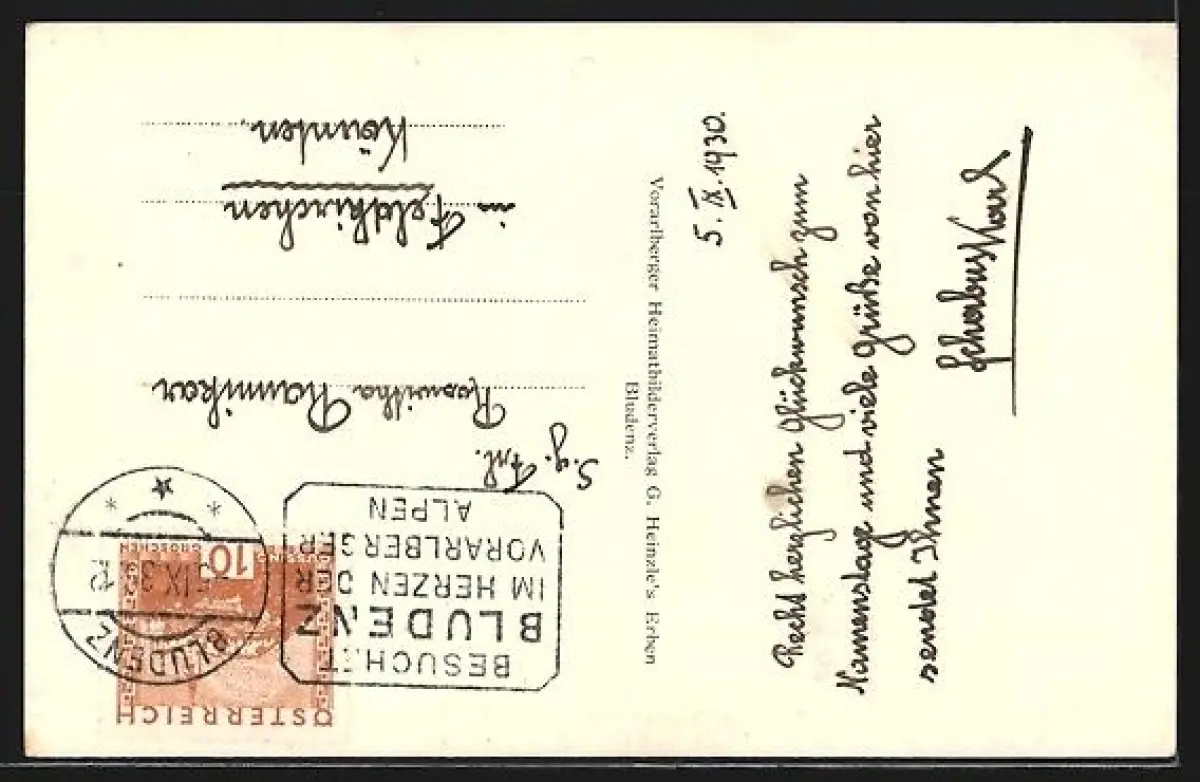 5. IX. 1930.
Recht herzlichen Glückwunsch zum
Namenstage und viele Grüße von hier
sendet Ihnen
Karl
Vorarlberger Heimatbilderverlag G. Heinzle's Erben
Bludenz.
ÖSTERREICH
10
GÜSSING
GROSCHEN
BLUDENZ
IX.3 12
BESUCHET
BLUDENZ
IM HERZEN DER
VORARLBERGER
ALPEN
S.g. Frl.
Roswitha
in Feldkirchen
Kärnten.